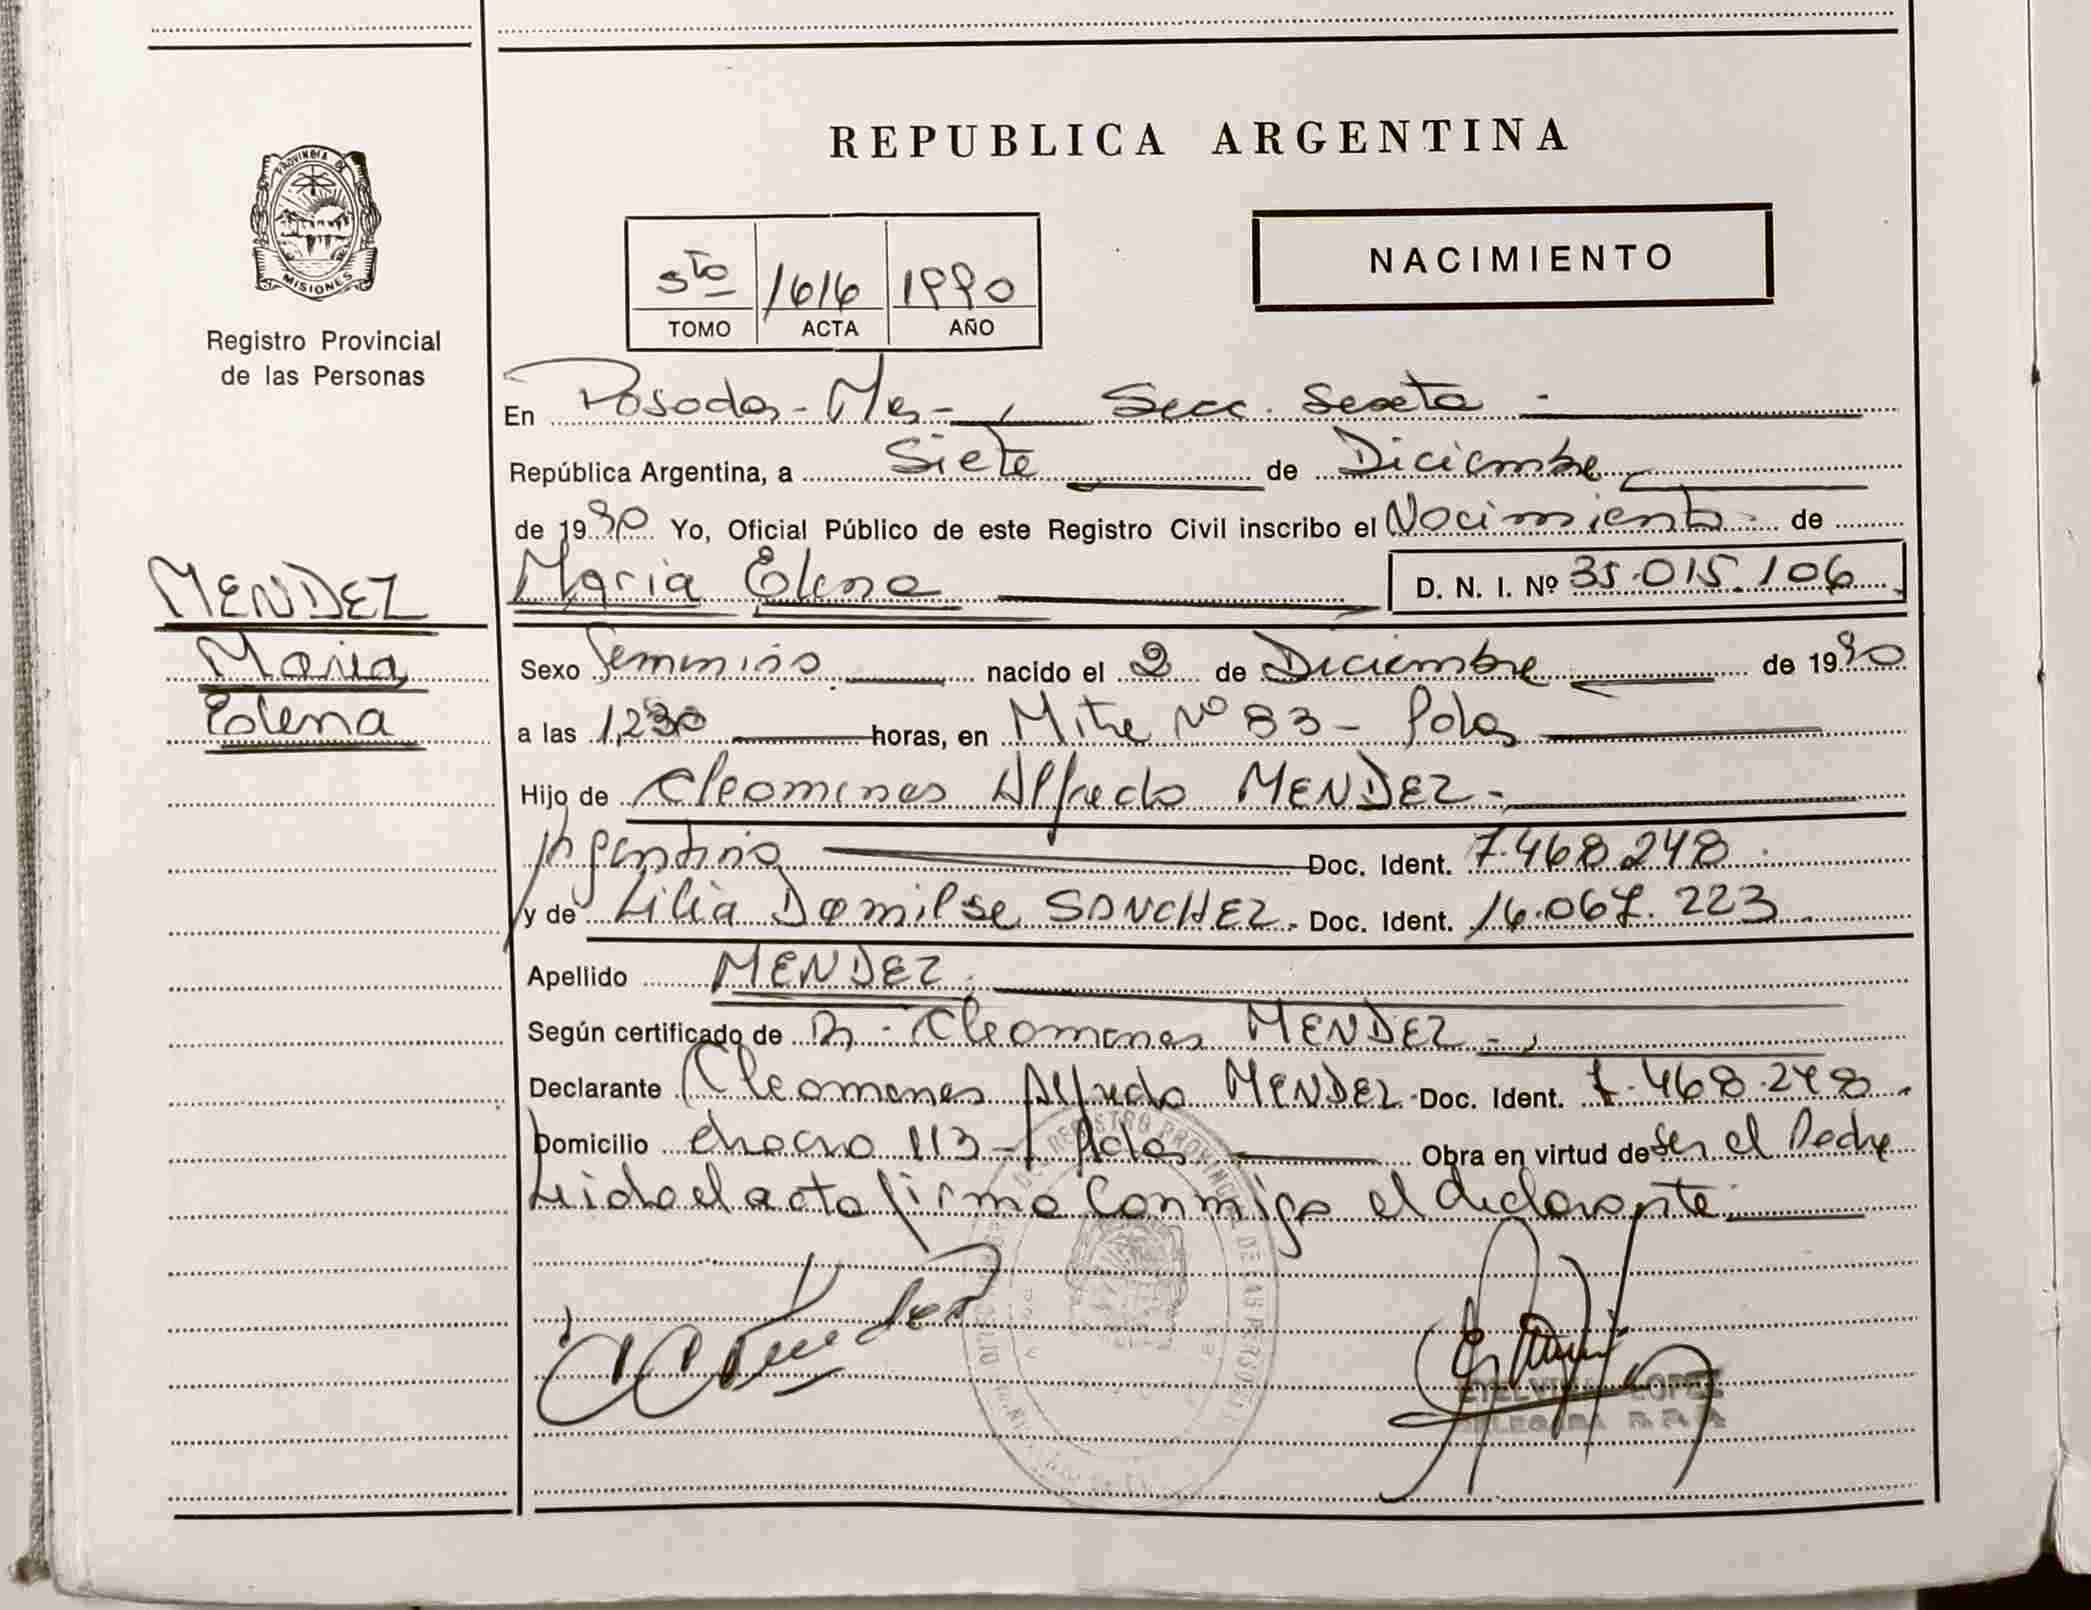 REPUBLICA ARGENTINA
PROVINCIA DE
MISIONES
Registro Provincial
de las Personas
NACIMIENTO
5to 1616 1990
TOMO ACTA AÑO
En Posadas - Mes -, Secc. Sexta -
República Argentina, a Siete de Diciembre
de 1990 Yo, Oficial Público de este Registro Civil inscribo el Nacimiento de
Maria Elena D. N. I. Nº 35.015.106
MENDEZ
Maria
Elena
Sexo femenino nacido el 2 de Diciembre de 1990
a las horas, en Mitre Nº 83 - Pdas
Hijo de Cleomenes Alfredo MENDEZ -
Argentino Doc. Ident. 7.468.248 .
y de Lilia Damilse SANCHEZ - Doc. Ident. 16.067.223
Apellido MENDEZ
Según certificado de Dr. Cleomenes MENDEZ -
Declarante Cleomenes Alfredo MENDEZ - Doc. Ident. 7.468.248
Domicilio chaco 113 - Pdas Obra en virtud de ser el Padre
Leida el acta firma conmigo el declarante
LOPEZ
DELEGADA R.P.P.